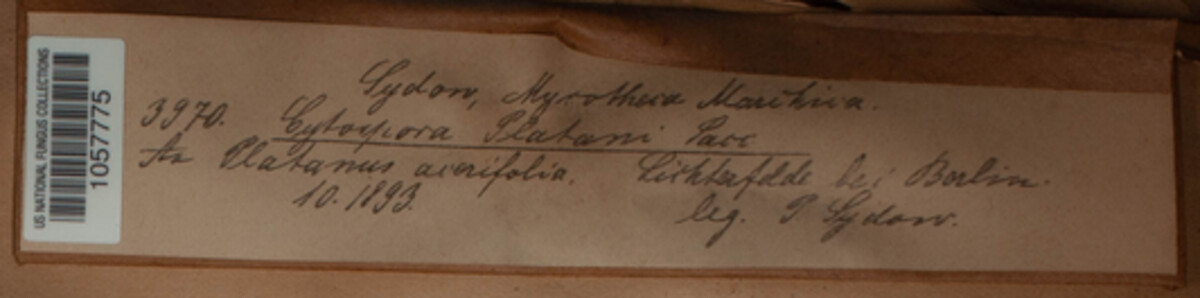 US NATIONAL FUNGUS COLLECTIONS
1057775
Sydow, Mycotheca Marchica.
3970. Cytospora Platani Sacc
An Platanus acerifolia. Lichterfelde bei Berlin.
10.1893. leg. P. Sydow.